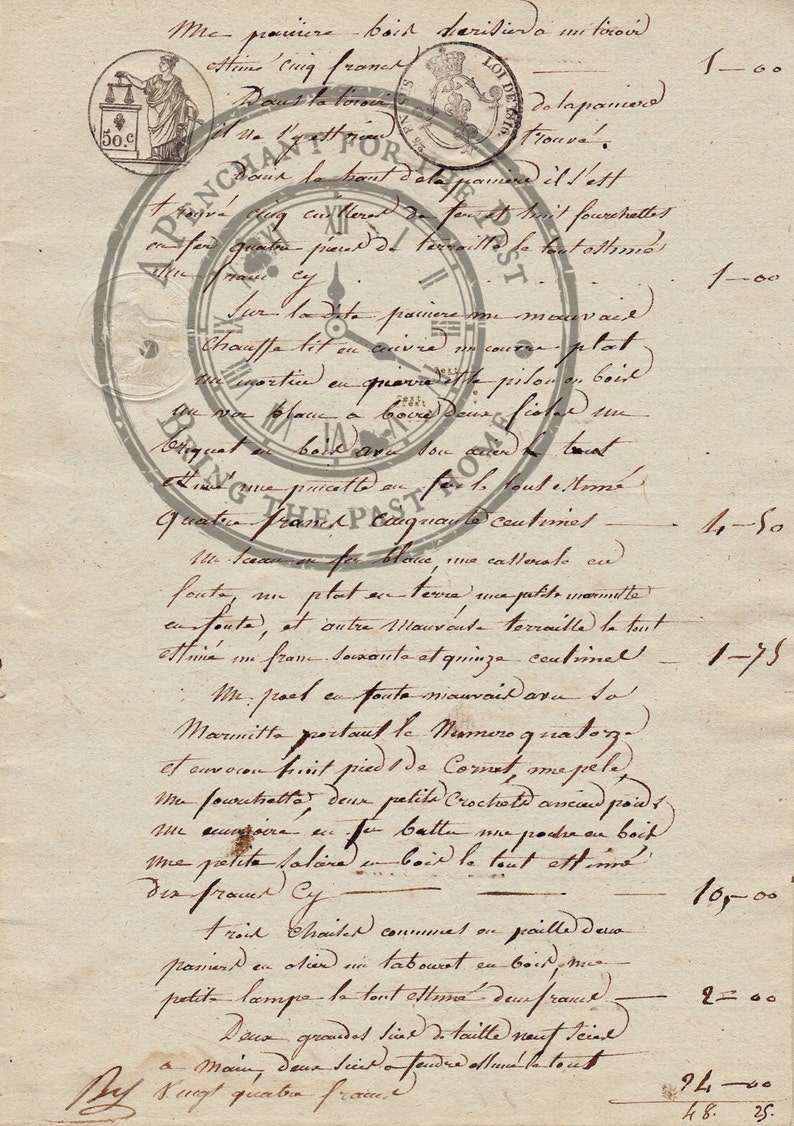 une paniere bois derisier a un tiroir
estimé cinq francs 5-00
Dans le tiroir de la paniere
il ne s'y est rien trouvé.
Dans le haut de la paniere il s'est
trouvé cinq cuilleres de fer et huit fourchettes
en fer quatre pieces de terraille le tout estimé
un franc cy 1-00
Sur la dite paniere une mauvaise
Chauffe lit en cuivre un couvre plat
un mortier en pierre et le pilon en bois
un ver blanc a boire deux fioles un
briquet en bois avec son acier le tout
estimé une pincette en fer le tout estimé
quatre francs cinquante centimes 4-50
un sceau en fer blanc, une casserole en
fonte, un plat en terre, une petite marmitte
en fonte, et autre mauvaise terraille le tout
estimé un franc soixante et quinze centimes 1-75
un poel en fonte mauvais avec sa
Marmitte portant le Numero quatorze
et environ huit pieds de Cornet, une pele,
une fourchette, deux petits Crochets ancien poids
une en fer battu une poche en bois
une petite saliere en bois le tout estimé
dix francs Cy 10,-00
trois chaises communes en paille deux
paniers en osier un tabouret en bois, une
petite lampe le tout estimé deux francs 2-00
Deux grandes sies de taille neuf scies
a main, deux sies a fendre estimé le tout
vingt quatre francs 24-00
48. 25.
50.c
LOI DE 1816.
A PENCHANT FOR THE PAST
BRING THE PAST HOME
XII I II III VI VII VIII IX
text
text